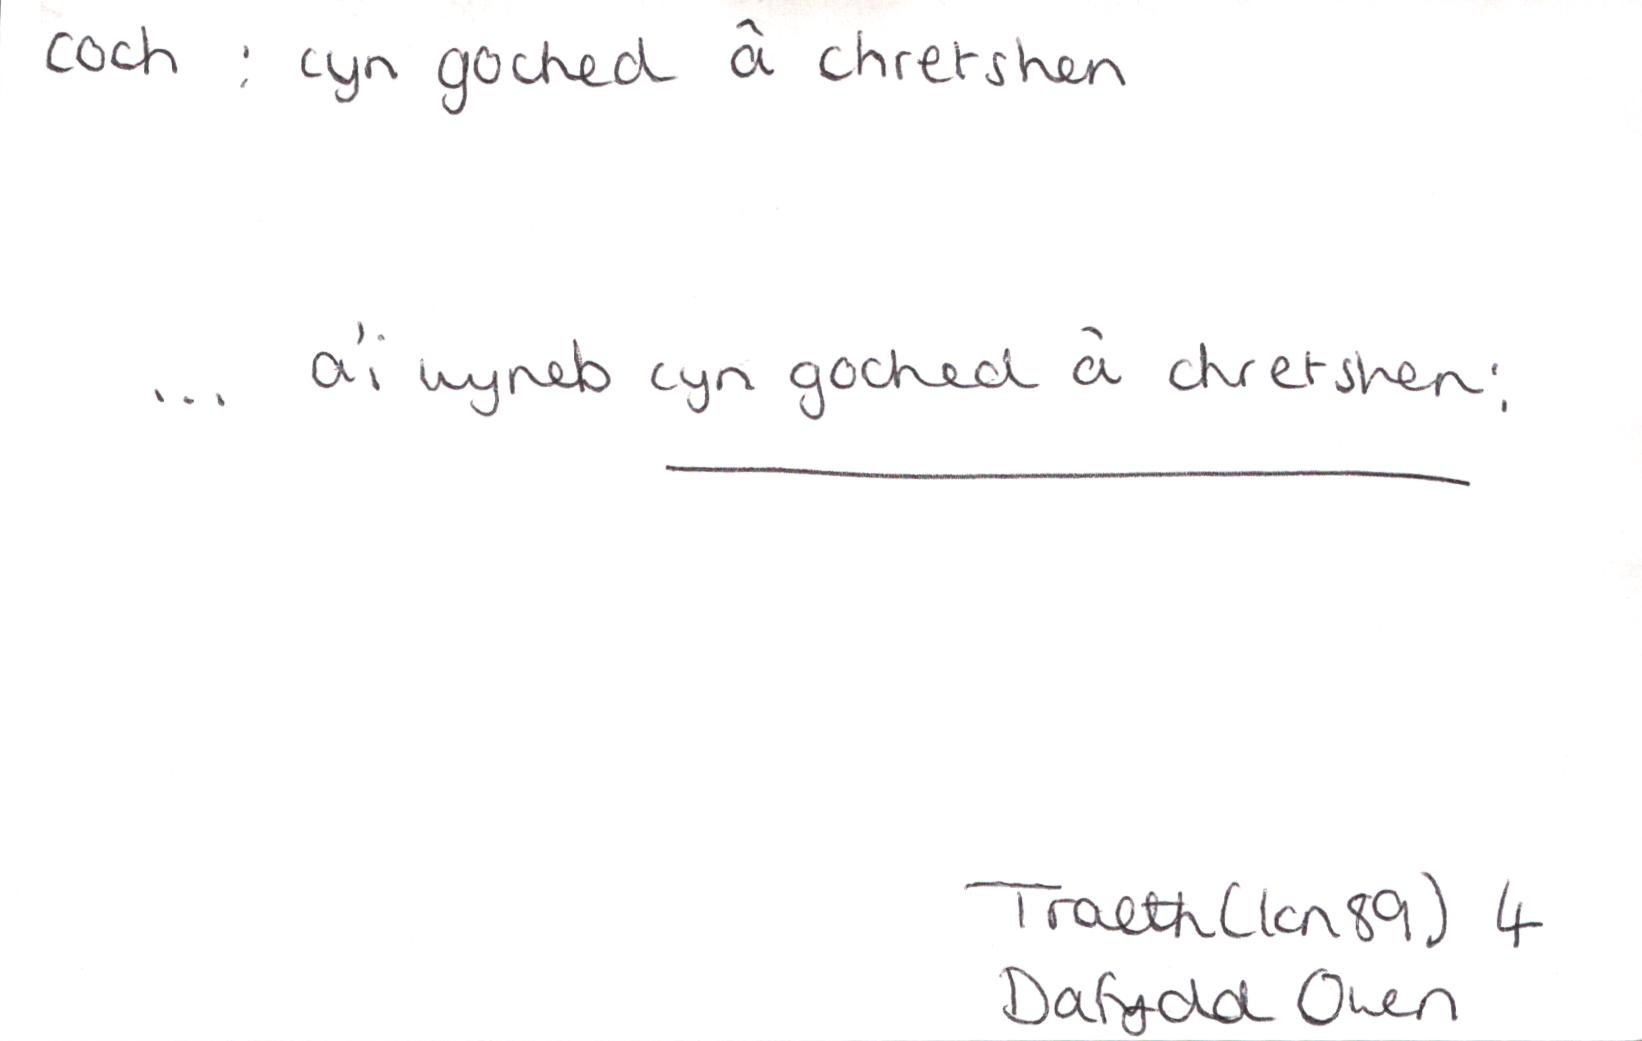 coch : cyn goched â chretshen
... a'i wyneb cyn goched â chretshen;
Traeth (Ion 89) 4
Dafydd Owen